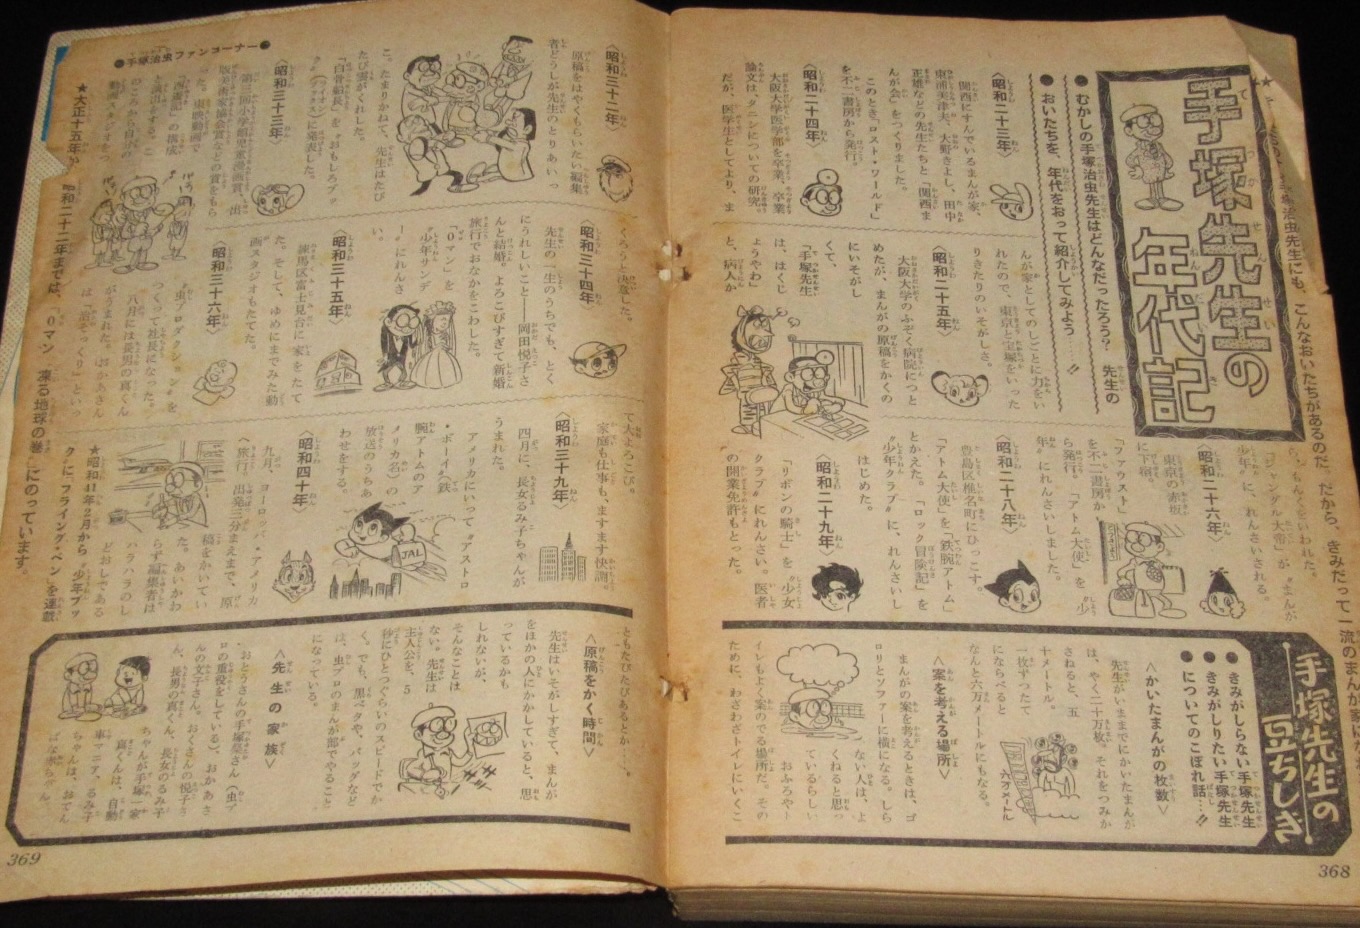 手塚先生の
年代記
●むかしの手塚治虫先生はどんなだったろう? 先生の
●おいたちを、年代をおって紹介してみよう……!!
〈昭和二十三年〉
関西にすんでいるまんが家、
東浦美津夫、大野きよし、田中
正雄などの先生たちと「関西ま
んが会」をつくりました。
このとき「ロスト・ワールド」
を不二書房から発行。
〈昭和二十四年〉
大阪大学医学部を卒業。卒業
論文は、タニシについての研究
だが、医学生としてより、ま
んが家としてのしごとに力をい
れたので、東京と宝塚をいった
りきたりのいそがしさ。
〈昭和二十五年〉
大阪大学のふぞく病院につと
めたが、まんがの原稿をかくの
にいそがし
くて、
「手塚先生
は、はくじ
ょうやわ」
と、病人か
ら、もんくをいわれた。
「ジャングル大帝」が〝まんが
少年〟に、れんさいされる。
〈昭和二十六年〉
東京の赤坂
に下宿。
「ファウスト」
を不二書房か
ら発行。「アトム大使」を〝少
年〟にれんさいしました。
〈昭和二十八年〉
豊島区椎名町にひっこす。
「アトム大使」を「鉄腕アトム」
とかえた。「ロック冒険記」を
〝少年クラブ〟に、れんさいし
はじめた。
〈昭和二十九年〉
「リボンの騎士」を〝少女
クラブ〟にれんさい。医者
の開業免許もとった。
手塚先生の
豆ちしき
●きみがしらない手塚先生
●きみがしりたい手塚先生
●についてのこぼれ話…!!
〈かいたまんがの枚数〉
先生がいままでにかいたまんが
は、やく二十万枚。それをつみか
さねると、五
十メートル。
一枚ずつたて
にならべると
なんと六万メートルにもなる。
六万メートル
〈案を考える場所〉
まんがの案を考えるときは、ゴ
ロリとソファーに横になる。しら
ない人は、よ
くねると思っ
ているらしい
おふろや、ト
イレもよく案のでる場所だ。その
ために、わざわざトイレにいくこ
368
●手塚治虫ファンコーナー●
〈昭和三十二年〉
原稿をはやくもらいたい編集
者どうしが先生のとりあいっ
こ。たまりかねて、先生はたび
たび雲がくれした。
〈昭和三十三年〉
第三回小学館児童漫画賞、出
版美術家協会賞などの賞をもら
った。東映動画で
「西遊記」の構成
くろうと決意した。
〈昭和三十四年〉
先生の一生のうちでも、とく
にうれしいこと――岡田悦子さ
んと結婚。よろこびすぎて新婚
旅行でおなかをこわした。
「0マン」を
〝少年サンデ
ー〟にれんさ
い。
〈昭和三十五年〉
練馬区富士見台に家をたて
た。そして、ゆめにまでみた動
画スタジオもたてた。
〈昭和三十六年〉
「虫プロダクション」を
つくって社長になった。
八月には長男の真くん
がうまれた。おかあさん
は「治そっくり」といっ
て大よろこび。
家庭も仕事も、ますます快調。
〈昭和三十九年〉
四月に、長女るみ子ちゃんが
うまれた。
アメリカにいって〝アストロ
・ボーイ〟(鉄
腕アトムのア
メリカ名)の
放送のうちあ
わせをする。
JAL
〈昭和四十年〉
九月、ヨーロッパ・アメリカ
旅行。出発三分まえまで、原
稿をかいてい
た。あいかわ
らず編集者は
ハラハラのし
どおしである
★昭和41年2月から〝少年ブッ
ク〟に「フライング・ベン」を連載
にのっています。
ともたびたびあるとか……。
〈原稿をかく時間〉
先生はいそがしすぎて、まんが
をほかの人にかかしていると、思
っているかも
しれないが、
そんなことは
ない。先生は
主人公を、5
秒にひとつぐらいのスピードでか
く。でも、黒ベタや、バックなど
は、虫プロのまんが部でやること
になっている。
〈先生の家族〉
おとうさんの手塚粲さん(虫プ
ロの重役をしている)、おかあさ
んの文子さん。おくさんの悦子さ
ん、長男の真くん、長女のるみ子
ちゃんが手塚一家
真くんは、自動
車マニア、るみ子
ちゃんは、おてん
369